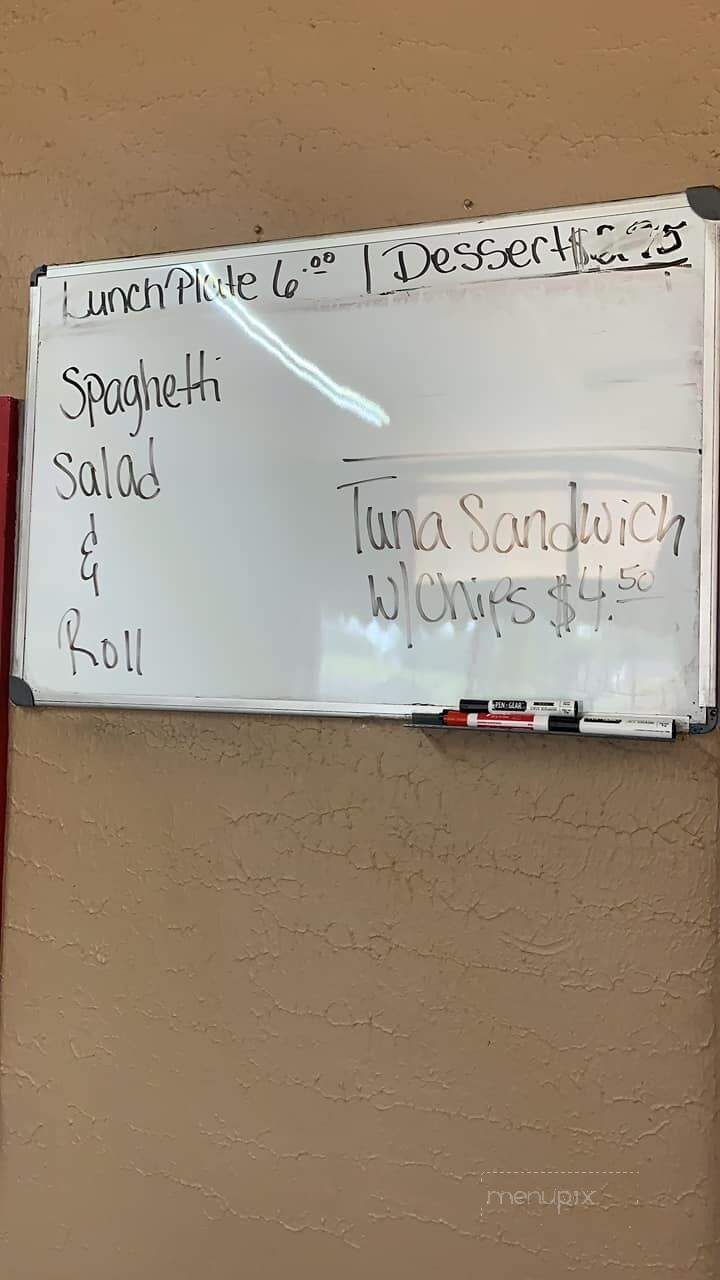 Lunch Plate 6.00 | Dessert
Spaghetti
Salad
&
Roll
Tuna Sandwich
W/Chips $4.50
PEN+GEAR
menupix